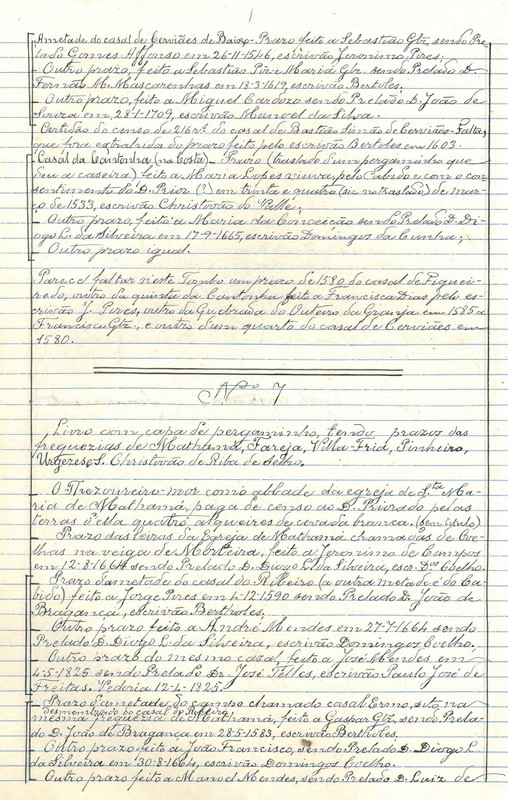 Ametade do casal de Cerviães de Baixo - Prazo feito a Sebastião Glz, sendo Pre-
lado Gomes Affonso em 26-11-1546, escrivão Jeronimo Pires.
_ Outro prazo, feito a Sebastião Pir e Maria Glz sendo Prelado D.
Fernão M. Mascarenhas em 18-3-1619, escrivão Bertholes.
_ Outro prazo, feito a Miguel Cardozo sendo Prelado D. João de
Souza em 28-1-1709, escrivão Manoel da Silva.
Certidão do censo de 216 rs. do casal de Bastião Simão de Cerviães - Falta,
que fora extrahida do prazo feito pelo escrivão Bertoles em 1603.
Casal da Cantonha (na Costa) - Prazo (traslado d'um pergaminho que
deu a caseira) feito a Maria Lopes viuva, pelo Cabido e com o con-
sentimento do D. Prior (?) em trinta e quatro (sic no traslado) de mar-
ço de 1533, escrivão Christovão do Valle,
_ Outro prazo, feito a Maria da Conceição sendo Prelado D. Di-
ogo L. da Silveira em 17-9-1665, escrivão Domingos da Cunha;
_ Outro prazo igual.
Parece faltar n'este Tombo um prazo de 1580 do casal de Figuei-
redo, outro da quinta da Cantonha feito a Francisca Dias pelo es-
crivão J. Pires, outro da Quebrada do Outeiro da Granja em 1585 a
Francisco Glz, e outro d'um quarto do casal de Cerviães em
1580.
Nº 7
Livro com capa de pergaminho, tendo prazos das
freguezias de Mathamá, Fareja, Villa-Fria, Pinheiro,
Urgezes e S. Christovão de Riba de Selho.
_ O Thezoureiro-mór como abbade da egreja de Sta Ma-
ria de Mathamá, paga de censo ao D. Priorado pelas
terras d'ella quatro alqueires de cevada branca. (sem titulo)
_ Prazo das leiras da Egreja de Mathamá chamadas de Ove-
lhas na veiga de Morteira, feito a Jeronimo de Campos
em 12-8-1664 sendo Prelado D. Diogo L. da Silveira, escr. Dos Coelho.
_ Prazo d'ametade do casal do Ribeiro (a outra metade é do Ca-
bido) feito a Jorge Pires em 4-12-1590 sendo Prelado D. João de
Bragança, escrivão Bertholes;
_ Outro prazo feito a André Mendes em 27-7-1664 sendo
Prelado D. Diogo L. da Silveira, escrivão Domingos Coelho.
_ Outro prazo do mesmo casal, feito a José Mendes em
4-5-1825 sendo Prelado D. José Telles, escrivão Paulo José de
Freitas. Vedoria 12-4-1825.
_ Prazo d'ametade do campo chamado casal Ermo, sito na
desmembrado do casal do Ribeiro
mesma freguezia de Mathamá, feito a Gaspar Glz, sendo Prela-
do D. João de Bragança em 28-5-1583, escrivão Bertholes,
_ Outro prazo feito a João Francisco, sendo Prelado D. Diogo L.
da Silveira em 30-8-1664, escrivão Domingos Coelho.
_ Outro prazo feito a Manoel Mendes, sendo Prelado D. Luiz de